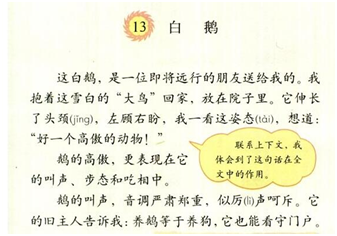 13 白鹅
这白鹅，是一位即将远行的朋友送给我的。我
抱着这雪白的“大鸟”回家，放在院子里。它伸长
了头颈(jǐng)，左顾右盼，我一看这姿态(tài)，想道：
“好一个高傲的动物！”
鹅的高傲，更表现在它
的叫声、步态和吃相中。
联系上下文，我
体会到了这句话在全
文中的作用。
鹅的叫声，音调严肃郑重，似厉(lì)声呵斥。它
的旧主人告诉我：养鹅等于养狗，它也能看守门户。